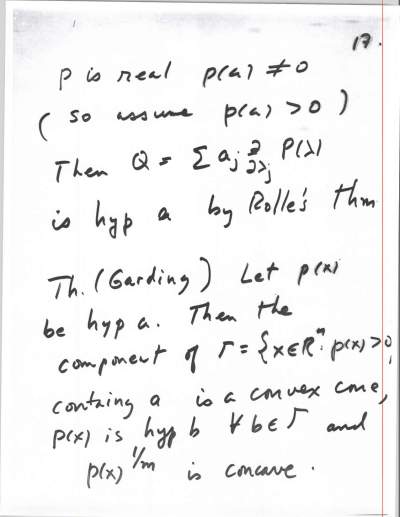 17.
P is real p(a) ≠ 0
( so assume p(a) > 0 )
Then Q = Σ aⱼ ∂/∂λⱼ P(λ)
is hyp a by Rolle's Thm
Th. (Garding) Let p(x)
be hyp a. Then the
component of Γ = {x∈Rⁿ: p(x)>0,
containg a is a convex cone,
p(x) is hyp b ∀ b∈Γ and
p(x)^{1/m} is concave.